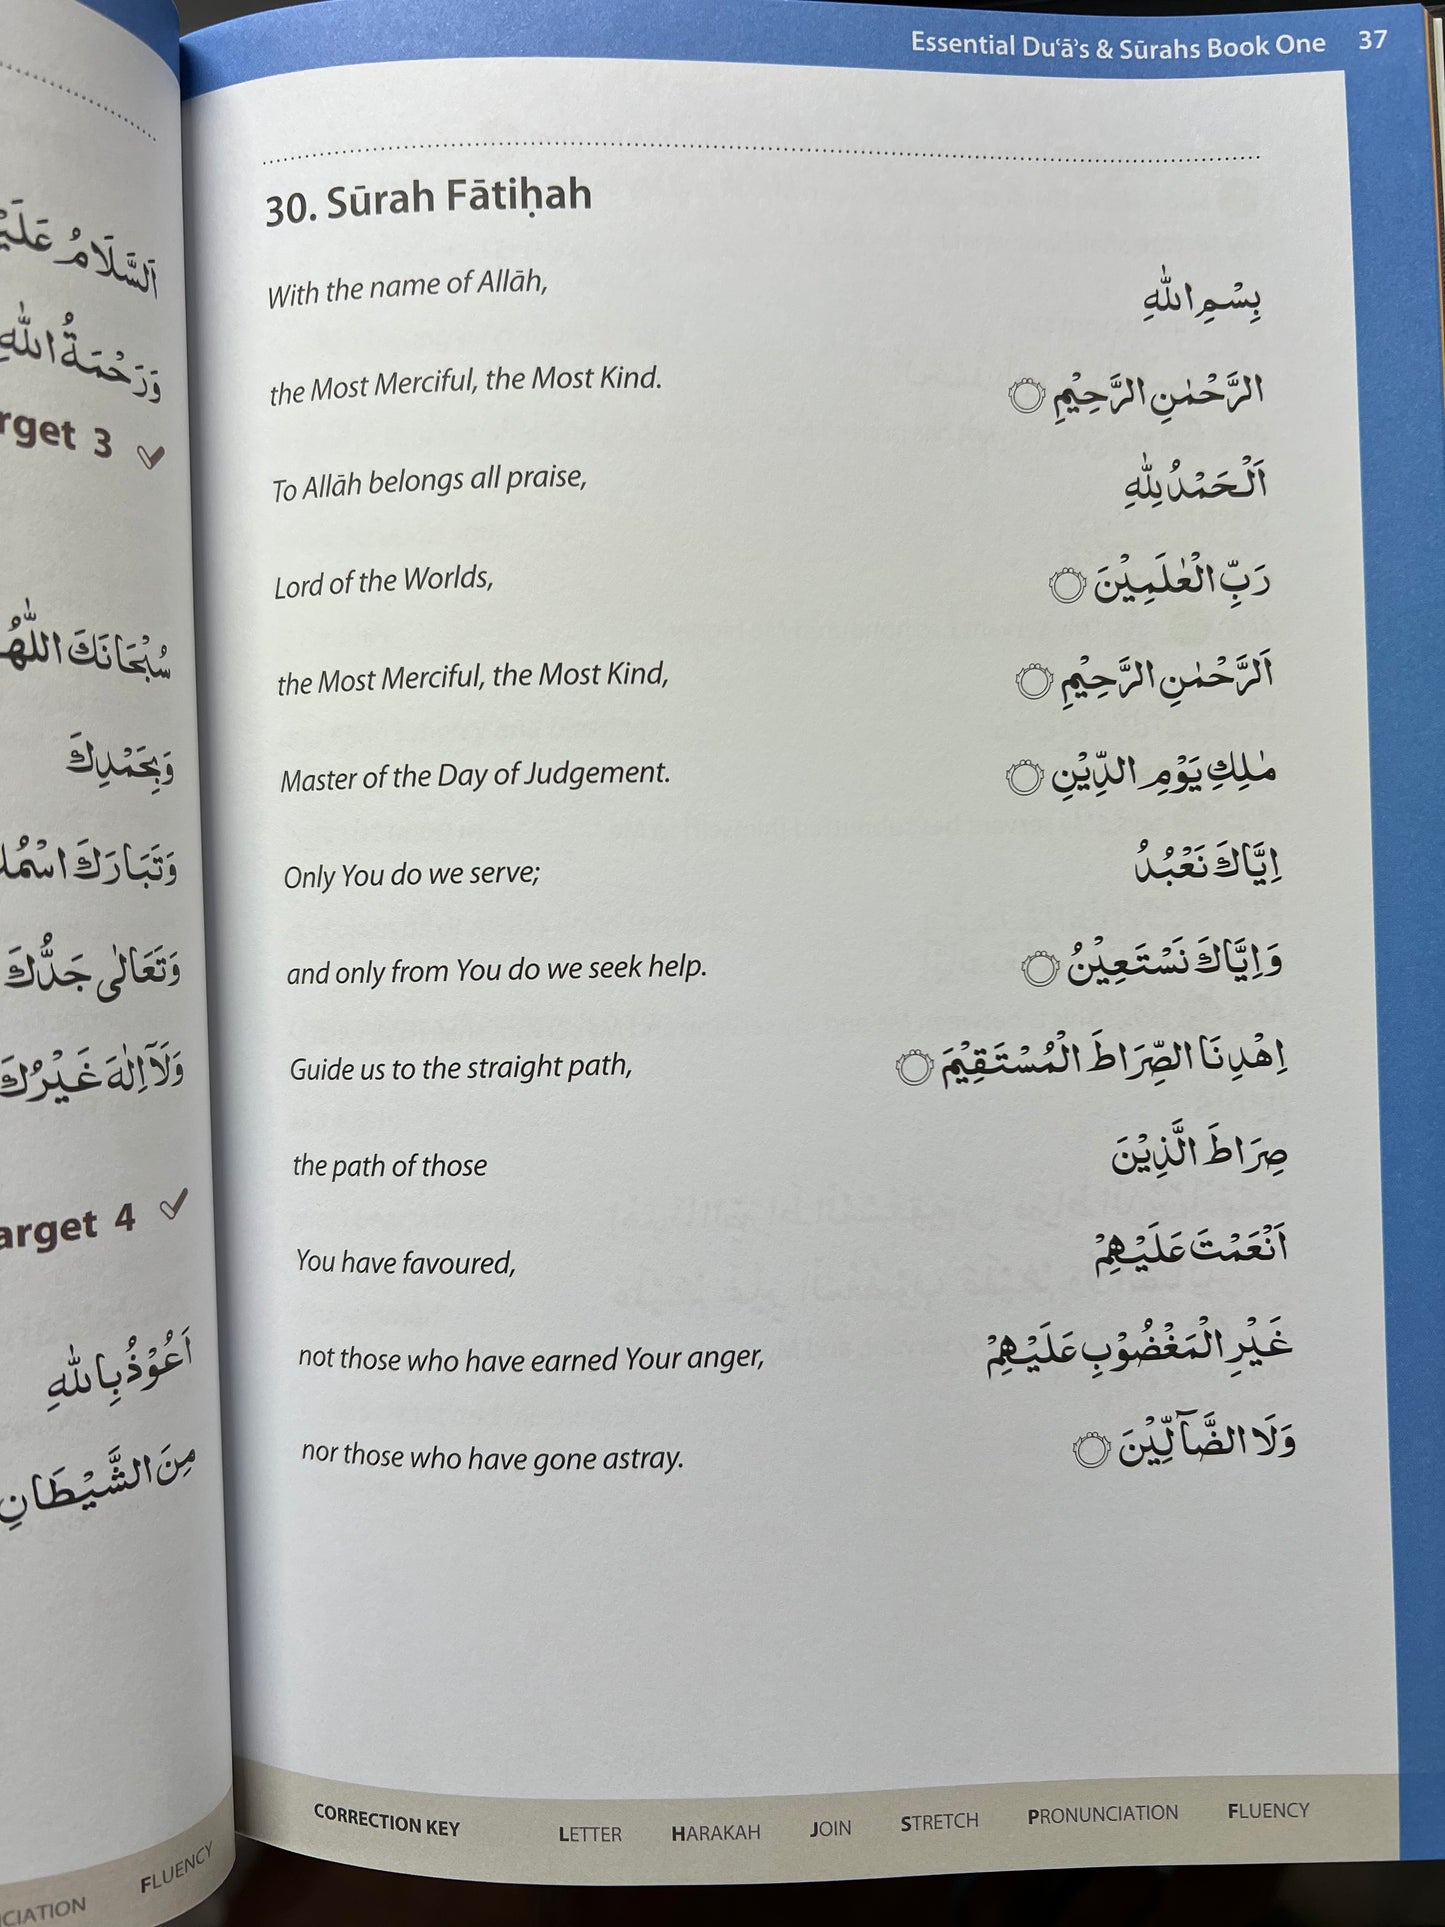 Essential Du‘ā’s & Sūrahs Book One 37
30. Sūrah Fātiḥah
With the name of Allāh, بِسْمِ اللّٰهِ
the Most Merciful, the Most Kind. الرَّحْمٰنِ الرَّحِيْمِ
To Allāh belongs all praise, اَلْحَمْدُ لِلّٰهِ
Lord of the Worlds, رَبِّ الْعٰلَمِيْنَ
the Most Merciful, the Most Kind, اَلرَّحْمٰنِ الرَّحِيْمِ
Master of the Day of Judgement. مٰلِكِ يَوْمِ الدِّيْنِ
Only You do we serve; اِيَّاكَ نَعْبُدُ
and only from You do we seek help. وَاِيَّاكَ نَسْتَعِيْنُ
Guide us to the straight path, اِهْدِنَا الصِّرَاطَ الْمُسْتَقِيْمَ
the path of those صِرَاطَ الَّذِيْنَ
You have favoured, اَنْعَمْتَ عَلَيْهِمْ
not those who have earned Your anger, غَيْرِ الْمَغْضُوْبِ عَلَيْهِمْ
nor those who have gone astray. وَلَا الضَّآلِّيْنَ
CORRECTION KEY LETTER HARAKAH JOIN STRETCH PRONUNCIATION FLUENCY
اَلسَّلَامُ
وَرَحْمَةُ اللّٰهِ
3
سُبْحَانَكَ
وَبِحَمْدِكَ
وَتَبَارَكَ
وَتَعَالٰى جَدُّكَ
وَلَآ اِلٰهَ غَيْرُكَ
4
اَعُوْذُ بِاللّٰهِ
مِنَ الشَّيْطَانِ
FLUENCY